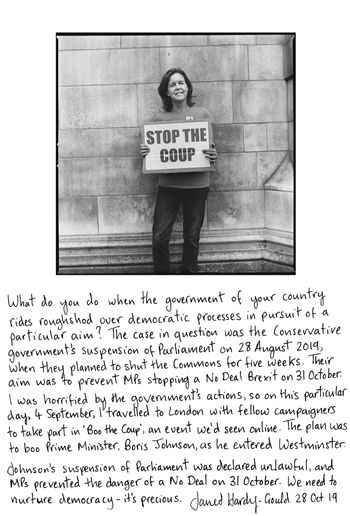 STOP THE
COUP
What do you do when the government of your country
rides roughshod over democratic processes in pursuit of a
particular aim? The case in question was the Conservative
government's suspension of Parliament on 28 August 2019,
when they planned to shut the Commons for five weeks. Their
aim was to prevent MPs stopping a No Deal Brexit on 31 October.
I was horrified by the government's actions, so on this particular
day, 4 September, I travelled to London with fellow campaigners
to take part in 'Boo the Coup', an event we'd seen online. The plan was
to boo Prime Minister, Boris Johnson, as he entered Westminster.
Johnson's suspension of Parliament was declared unlawful, and
MPs prevented the danger of a No Deal on 31 October. We need to
nurture democracy - it's precious. Janet Hardy-Gould 28 Oct 19